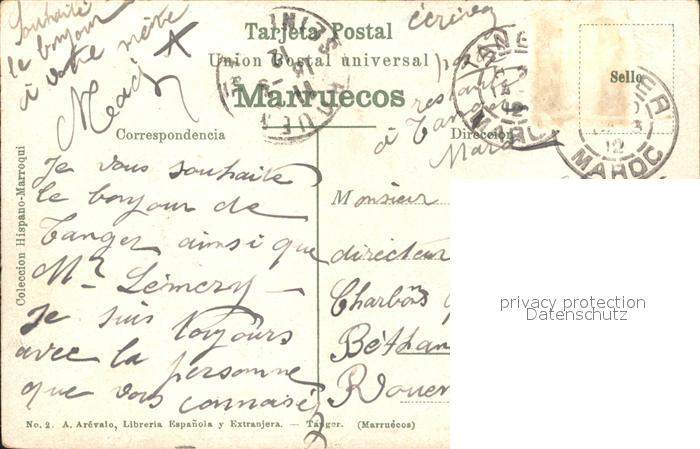 Souhaité
le bonjour
à votre mère
Tarjeta Postal
Union Postal universal
Marruecos
écrivez
restante
à Tanger
Maroc
Sello
TANGER
MAROC
12
Correspondencia
Dirección
Coleccion Hispano-Marroqui
Je vous souhaite
le bonjour de
Tanger ainsi que
Mr Lémery –
Je suis toujours
avec la personne
que vous connaisez
Monsieur
directeur
Charbons
Béthan
Rouen
privacy protection
Datenschutz
No. 2. A. Arévalo, Libreria Española y Extranjera. — Tánger. (Marruecos)